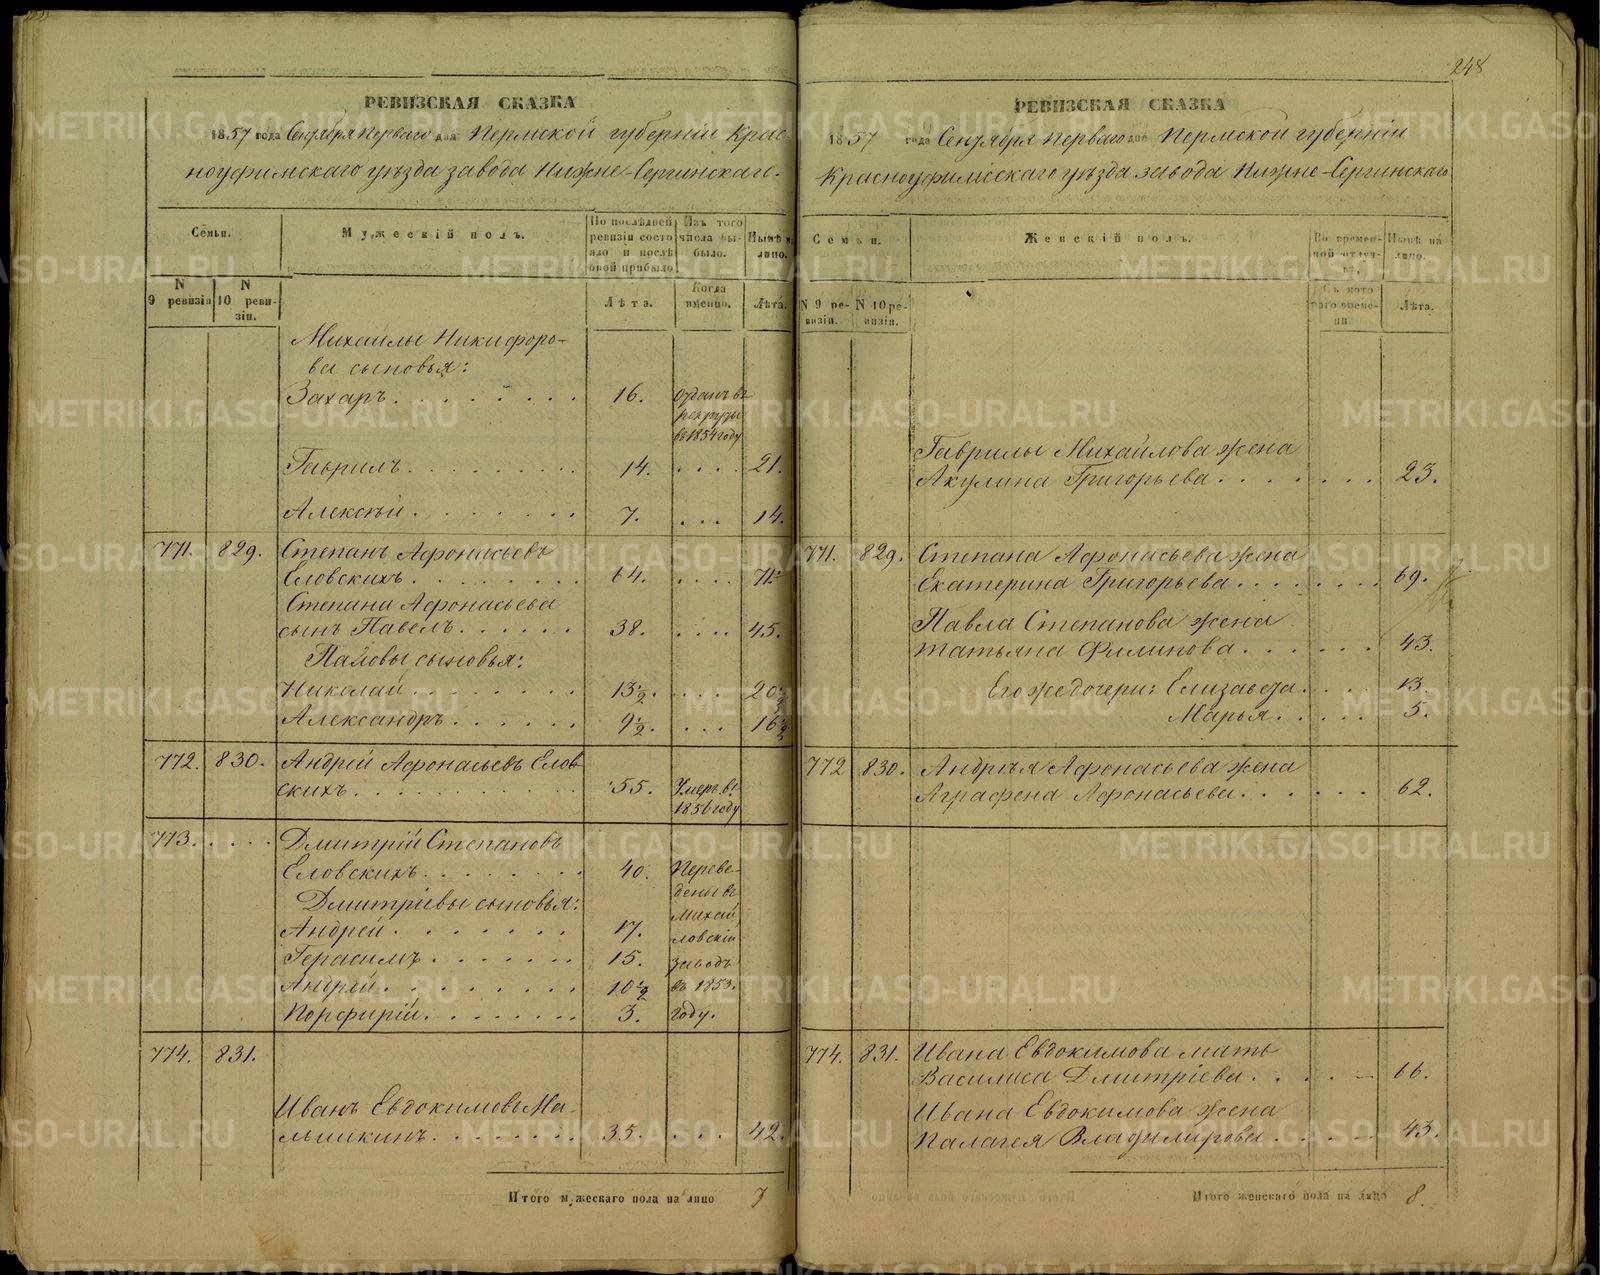 248
РЕВИЗСКАЯ СКАЗКА
1857 года Сентября перваго дня Пермской губерніи Крас-
ноуфимскаго уѣзда завода Нижне-Сергинскаго.
Семьи.
Мужескій полъ.
По послѣдней ревизіи состояло и послѣ оной прибыло.
Изъ того числа выбыло.
Нынѣ на лицо.
N 9 ревизіи
N 10 ревизіи.
Лѣта.
Когда именно.
Лѣта.
Михайлы Никифоро-
ва сыновья:
Захаръ 16. Отданъ въ
рекруты
въ 1854 году
Гаврилъ 14. 21.
Алексѣй 7. 14.
771. 829. Степанъ Афонасьевъ
Еловскихъ 64. 71.
Степана Афонасьева
сынъ Павелъ 38. 45.
Павловы сыновья:
Николай 13 1/2. 20 1/2
Александръ 9 1/2. 16 1/2
772. 830. Андрей Афонасьевъ Елов-
скихъ 55. Умеръ въ
1856 году
773. Дмитрій Степановъ
Еловскихъ 40. Переве-
Дмитріевы сыновья: дены въ
Андрей 17. Михай
ловскій
Герасимъ 15. заводъ
Андрей 10 1/2 въ 1853.
Порфирій 3. году.
774. 831.
Иванъ Евдокимовъ Ма-
лышкинъ 35. 42.
Итого мужескаго пола на лицо 7
РЕВИЗСКАЯ СКАЗКА
1857 года Сентября перваго дня Пермской губерніи
Красноуфимскаго уѣзда завода Нижне-Сергинскаго
Семьи.
Женскій полъ.
Во временной отлучкѣ.
Нынѣ на лицо.
N 9 ревизіи.
N 10 ревизіи.
Съ котораго времени.
Лѣта.
Гаврилы Михайлова жена
Акулина Григорьева 23.
771. 829. Степана Афонасьева жена
Екатерина Григорьева 69.
Павла Степанова жена
Татьяна Филипова 43.
Его же дочери: Елизавета 13.
Марья 5.
772 830. Андрея Афонасьева жена
Аграфена Афонасьева 62.
774. 831. Ивана Евдокимова мать
Василиса Дмитріева 66.
Ивана Евдокимова жена
Палагея Владимирова 43.
Итого женскаго пола на лицо 8.
METRIKI.GASO-URAL.RU